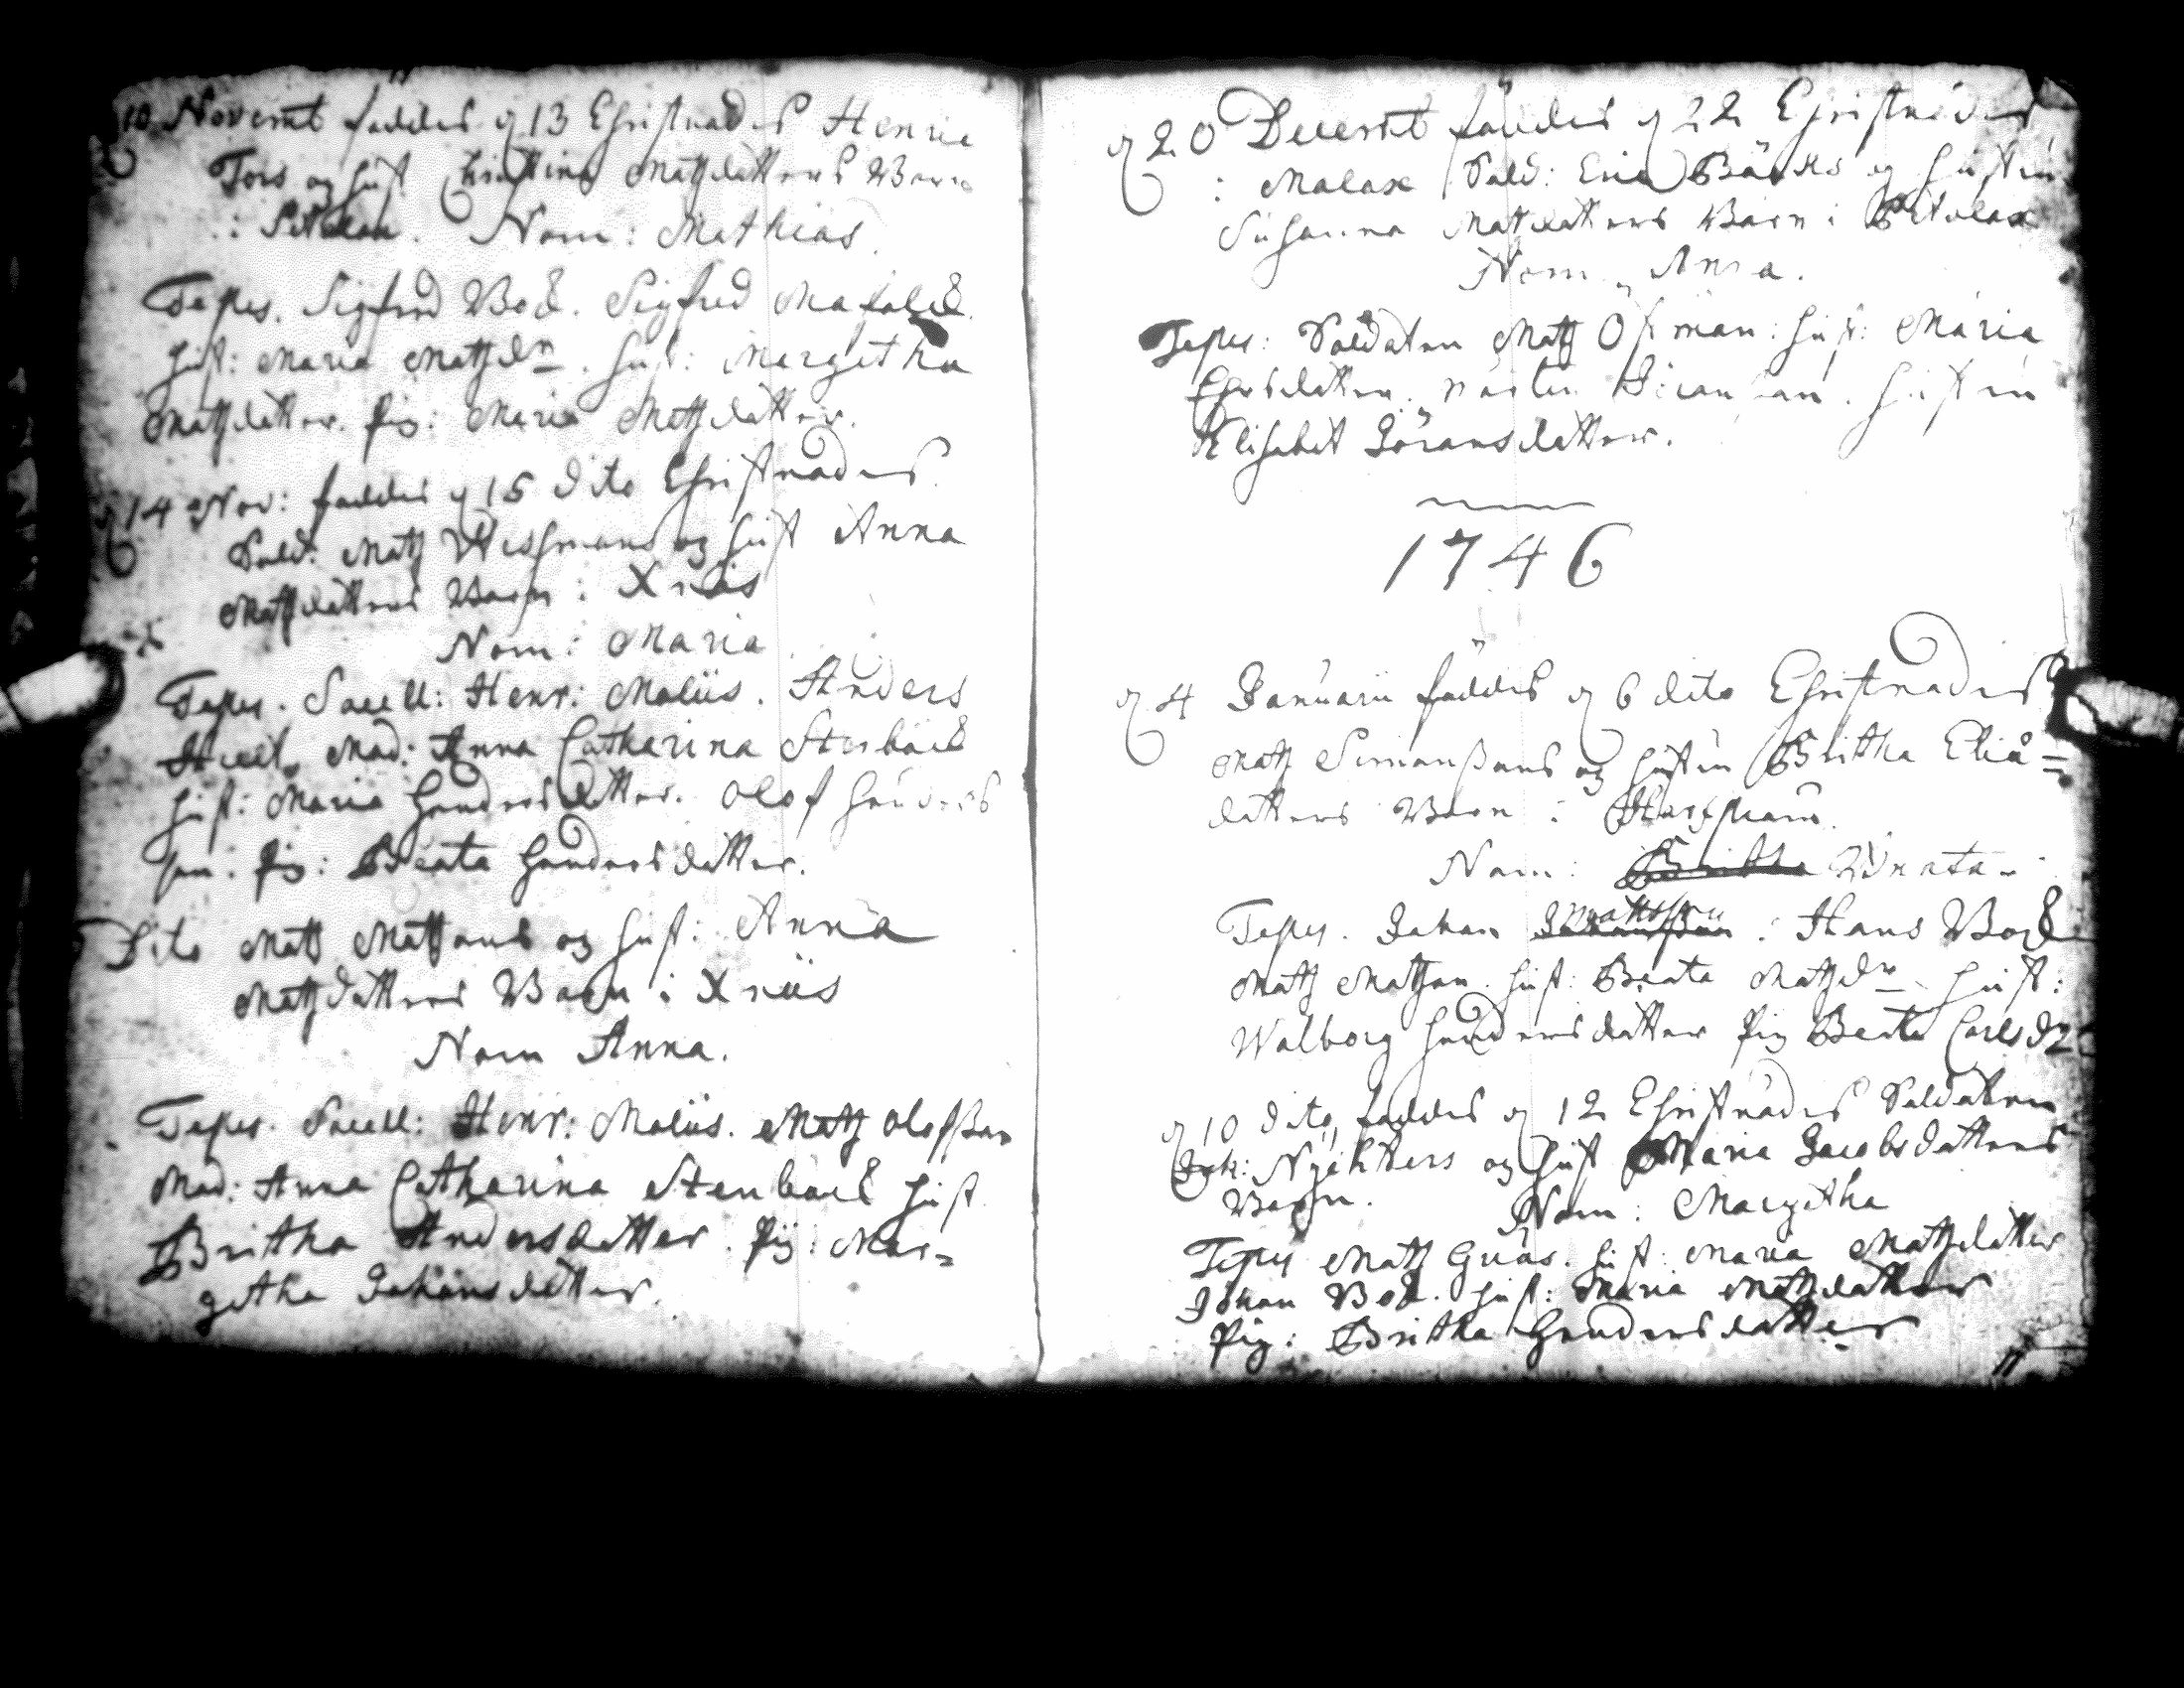 10 Novemb föddes ȷ 13 Christnades Henric
Tors og hust Christina Mattzdotters Barn
Nom: Mathias.
Testes. Sigfred Bock. Sigfred
hust: Maria Mattzdr. hust: Margetha
Mattzdotter. Pig: Maria Mattzdotter.
14 Nov: föddes ȷ 15 dito Christnades
Sold: Mattz og hust Anna
Mattzdotters Barn i Xnäs
Nom: Maria
Testes. Sacell: Henr: Maliis. Anders
Mad: Anna Catharina Stenbäck
hust: Maria Hendersdotter. Olof Henders
son. Pig: Beata Hendersdotter.
Dito Matt Mattsons og hust: Anna
Mattzdotters Barn i Xnäs
Nom Anna.
Testes. Sacell: Henr: Maliis. Mattz Olofsson
Mad: Anna Catharina Stenbäck hust
Britha Andersdotter. Pig: Mar=
getha Johansdotter.
ȷ 20 Decemb föddes ȷ 22 Christnades
i Malax Sold: Eric Bäcks og hustru
Susanna Mattzdotters Barn i Petalax
Nom. Anna.
Testes: Soldaten Mattz Östman. hust: Maria
Ersdotter. hustru
Elisabet Göransdotter.
1746
ȷ 4 Januarii föddes ȷ 6 dito Christnades
Mattz Simonssons og hustru Britha Eliæ=
dotters Barn i
Nom: Britha Beata.
Testes. Johan Mattsson. Hans Bock
Mattz Mattson. hust: Beata Mattzdr. hust:
Walborg Hendersdotter Pig Beata Carlsdr
ȷ 10 dito föddes ȷ 12 Christnades Soldaten
og hust Maria Jacobsdotters
Barn. Nom: Margetha
Testes Matt Gräs. hust: Maria Mattzdotter
Johan Bock. hust: Maria Mattzdotter
Pig: Britha Hendersdotter